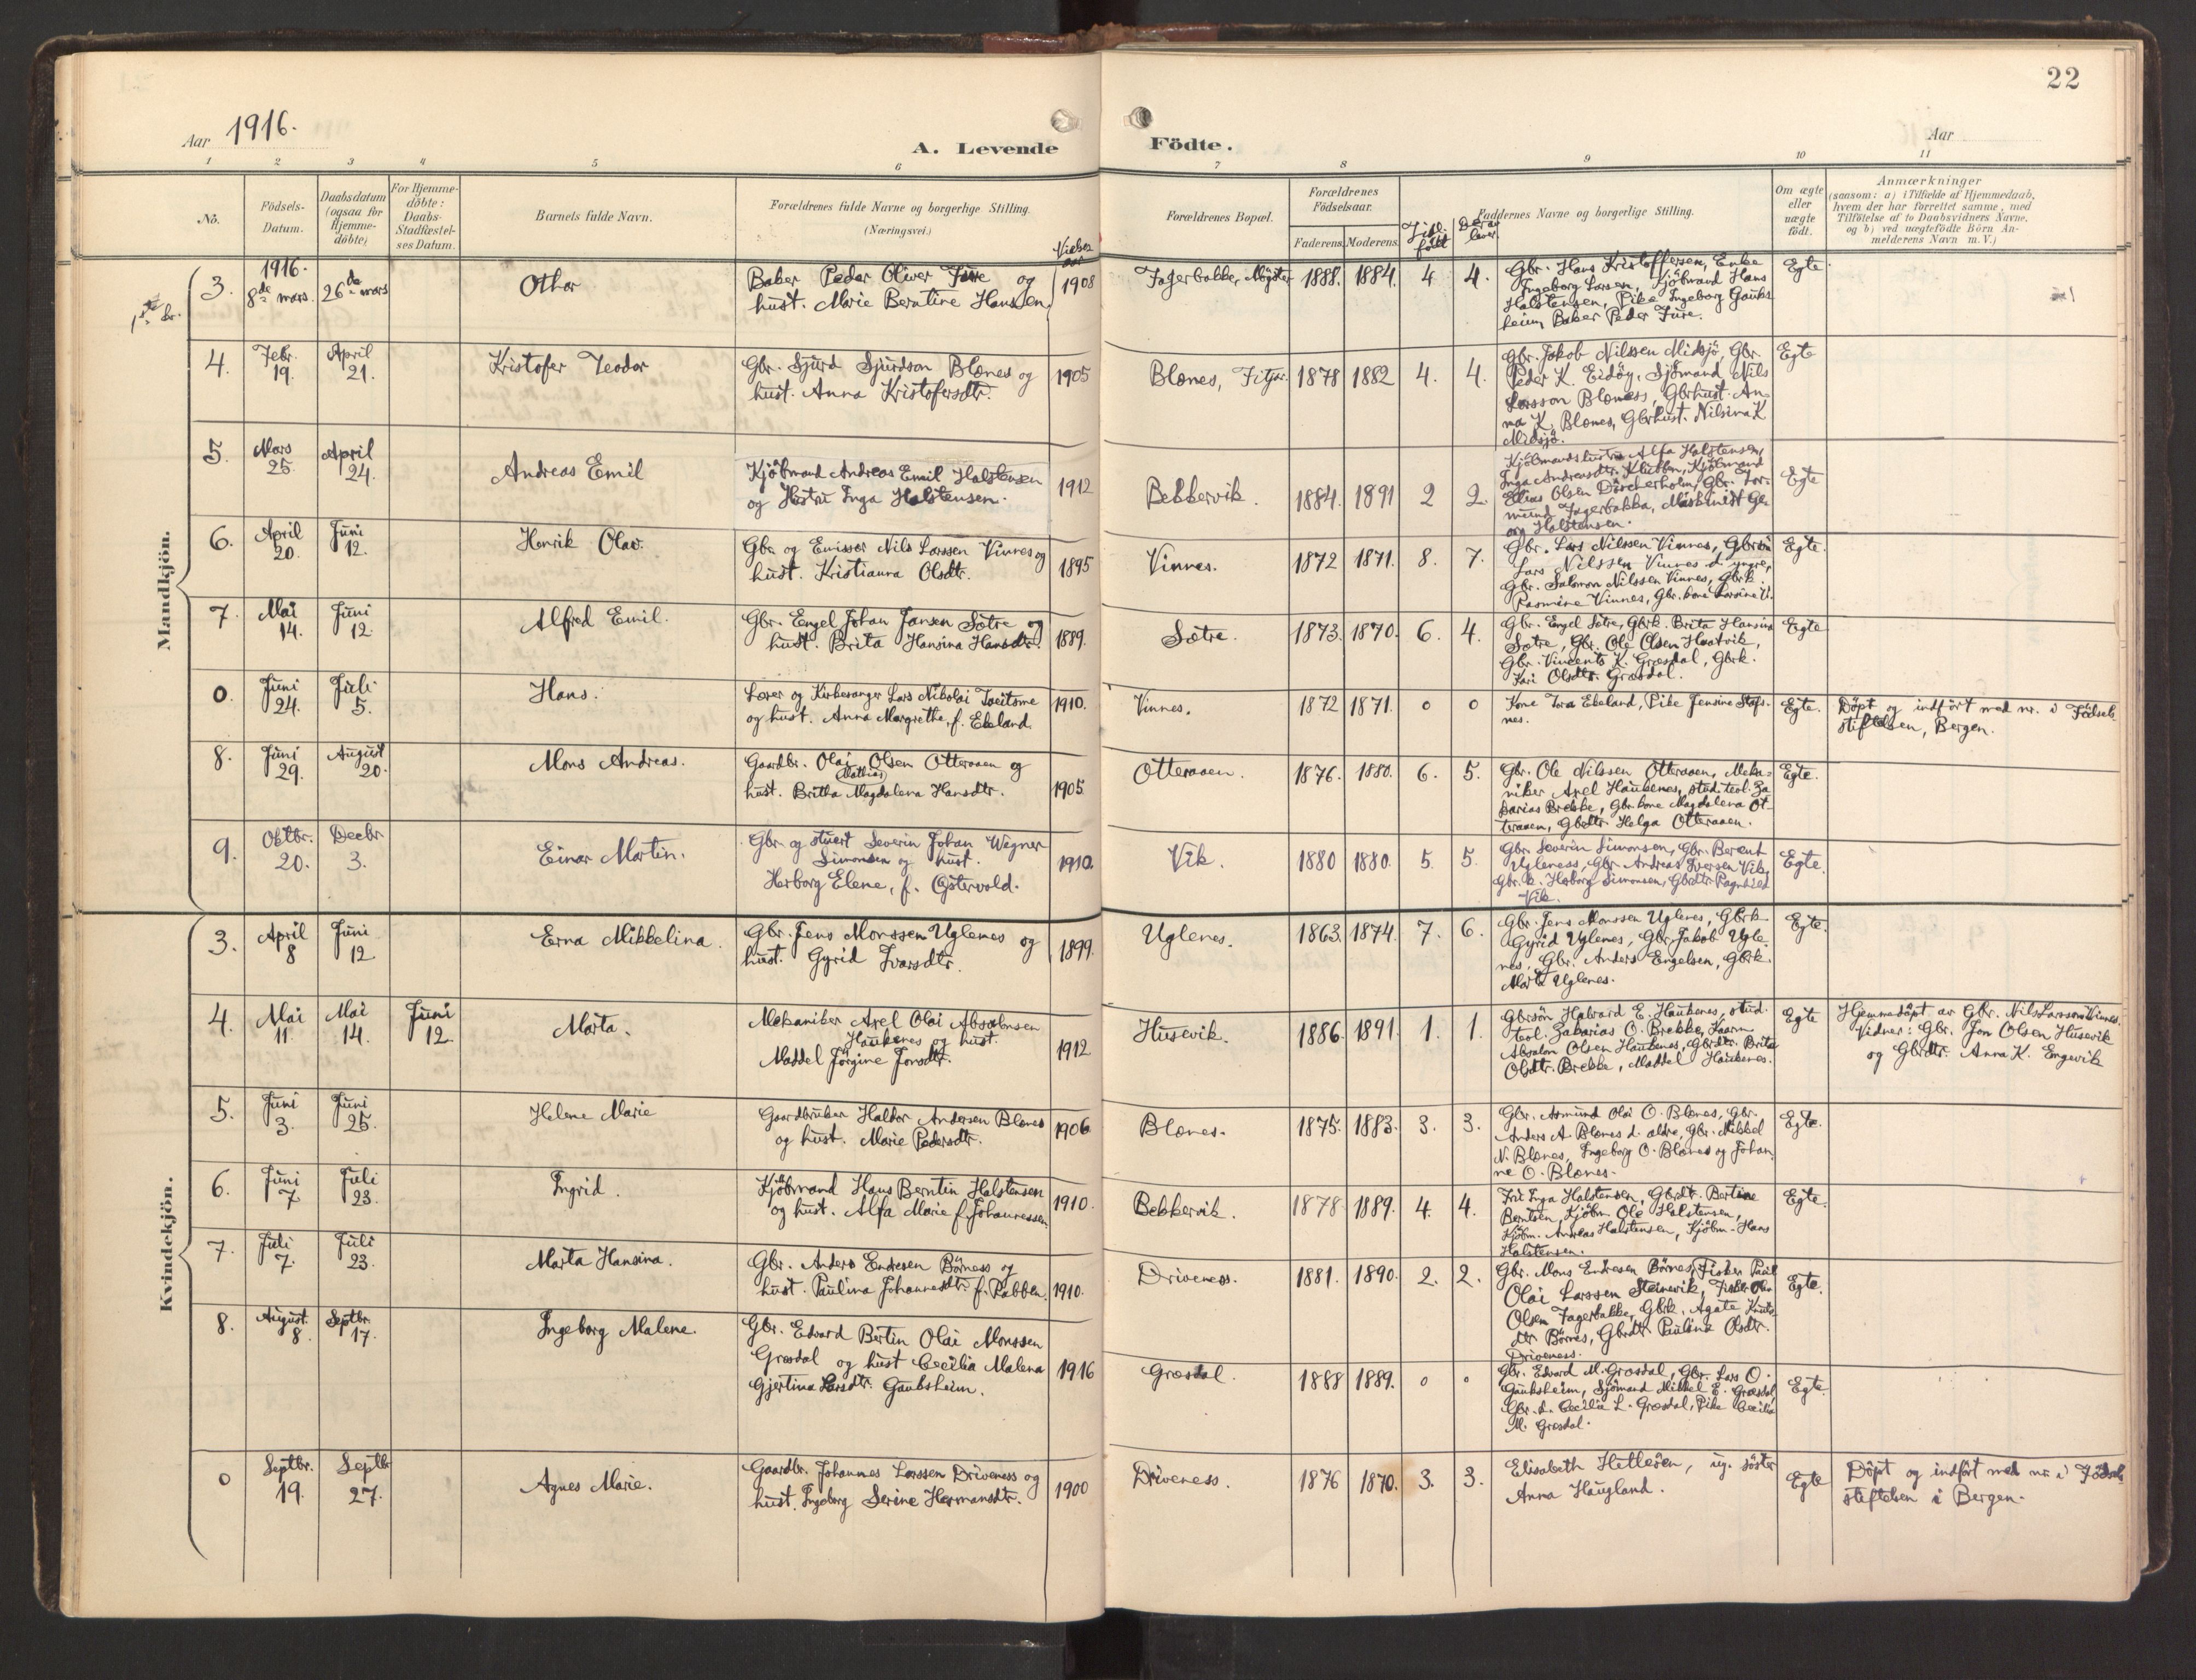 22
Aar 1916.
A. Levende Födte.
Aar
1 2 3 4 5 6 7 8 9 10 11
No.
Födsels-
Datum.
Daabsdatum
(ogsaa for
Hjemme-
döbte)
For Hjemme-
döbte:
Daabs-
Stadfæstel-
ses Datum.
Barnets fulde Navn.
Forældrenes fulde Navne og borgerlige Stilling.
(Næringsvei.)
Vielses
aar
Forældrenes Bopæl.
Forældrenes
Födselsaar.
Faderens. Moderens.
Tidl.
född
Derav
lever.
Faddernes Navne og borgerlige Stilling.
Om ægte
eller
uægte
födt.
Anmærkninger
(saasom: a) i Tilfælde af Hjemmedaab,
hvem der har forrettet samme, med
Tilföielse af to Daabsvidners Navne,
og b) ved uægtefödte Börn An-
melderens Navn m. V.)
Mandkjön.
3.
1916.
8de mars.
26de mars
Othar
Baker Peder Oliver Fure og
hust. Marie Berntine Hanssen.
1908
Fagerbakke, Møgster
1888. 1884. 4 4.
Gbr. Hans Kristoffersen, Enke
Ingeborg Larsen, Kjöbmand Hans
Halstensen, Pike Ingeborg Gauks-
heim, Baker Peder Fure.
Egte
4.
Febr.
19.
April
21.
Kristofer Teodor
Gbr. Sjurd Sjurdson Blænes og
hust. Anna Kristofersdtr.
1905
Blænes, Fitjar.
1878 1882 4. 4.
Gbr. Jakob Nilssen Midsjø, Gbr.
Peder K. Eidöy, Sjömand Nils
Larsson Blænes, Gbrhust. An-
na K. Blænes, Gbrhust. Nilsina K
Midsjø.
Egte
5.
Mars
25.
April
24.
Andreas Emil
Kjöbmand Andreas Emil Halstensen
og Hustru Inga Halstensen.
1912
Bekkervik.
1884. 1891 2 2.
Kjöbmandshustru Alfa Halstensen,
Inga Andreasdtr. Klubben, Kjöbmand
Elias Olsen Dörcherholm, Gbr. Tor-
mund Fagerbakka, Maskinist Ge-
org Halstensen.
Egte
6.
April
20.
Juni
12.
Henrik Olav.
Gbr. og Emissær Nils Larssen Vinnes og
hust. Kristianna Olsdtr.
1895
Vinnes.
1872 1871. 8. 7.
Gbr. Lars Nilssen Vinnes, Gbrsön
Lars Nilssen Vinnes d. yngre,
Gbr. Salamon Nilssen Vinnes, Gbrk.
Rasmine Vinnes, Gbr. kone Larsine V.
Egte.
7.
Mai
14.
Juni
12.
Alfred Emil.
Gbr. Engel Johan Jansen Sætre og
hust. Brita Hansina Hansdtr.
1889.
Sætre.
1873. 1870. 6. 4.
Gbr. Engel Sætre, Gbrk. Brita Hansina
Sætre, Gbr. Ole Olsen Haatvik,
Gbr. Vincents K. Græsdal, Gbrk.
Kari Olsdtr. Græsdal.
Egte
0.
Juni
24.
Juli
5.
Hans.
Lærer og Kirkesanger Lars Nikolai Tveitsme
og hust. Anna Margrethe, f. Ekeland.
1910.
Vinnes.
1872 1871. 0 0
Kone Tora Ekeland, Pike Jensine Stafs-
nes.
Egte.
Döpt og indfört med nr. i Födsels-
stiftelsen, Bergen.
8.
Juni
29.
August
20.
Mons Andreas.
Gaardbr. Olai Mathias Olsen Otteraaen og
hust. Britha Magdalena Hansdtr.
1905
Otteraaen.
1876. 1880. 6. 5.
Gbr. Ole Nilssen Otteraaen, Meka-
niker Axel Haukenes, stud. teol. Za-
karias Brekke, Gbr. kone Magdalena Ot-
teraaen, Gbdtr. Helga Otteraaen.
Egte.
9.
Oktbr.
20.
Decbr.
3.
Einar Martin.
Gbr. og stuert Severin Johan Wegner
Simonsen og hust.
Herborg Elene, f. Östervold.
1910.
Vik.
1880 1880. 5. 5.
Gbr. Severin Simonsen, Gbr. Berent
Ugleness, Gbr. Andreas Iversen Vik,
Gbr. k. Herborg Simonsen, Gbrdtr Ragnhild
Vik.
Egte.
Kvindekjön.
3.
April
8
Juni
12.
Erna Mikkelina.
Gbr. Jens Monssen Uglenes og
hust. Gyrid Ivarsdtr.
1899.
Uglenes.
1863. 1874. 7. 6.
Gbr. Jens Monssen Uglenes, Gbrk.
Gyrid Uglenes, Gbr. Jakob Ugle-
nes, Gbr. Anders Engelsen, Gbrk.
Marta Uglenes.
Egte.
4.
Mai
11.
Mai
14.
Juni
12.
Marta.
Mekaniker Axel Olai Absalonsen
Haukenes og hust.
Maddel Jörgine Jonsdtr.
1912
Husevik.
1886. 1891. 1. 1.
Gbrsön Halvard E. Haukenes, stud.
teol. Zakarias O. Brekke, Kaarm.
Absalon Olsen Haukenes, Gbrdtr. Brita
Olsdtr. Brekke, Maddel Haukenes.
Egte
Hjemmedöpt av Gbr. Nils Larssen Vinnes.
Vidner: Gbr. Jon Olsen Husevik
og Gbrdtr. Anna K. Engevik
5.
Juni
3.
Juni
25.
Helene Marie
Gaardbruker Haldor Andersen Blænes
og hust. Marie Pedersdtr.
1906
Blænes.
1875. 1883. 3. 3.
Gbr. Asmund Olai O. Blænes, Gbr.
Anders A. Blænes d. ældre, Gbr. Mikkel
N. Blænes, Ingeborg O. Blænes og Johan-
ne O. Blænes.
Egte.
6.
Juni
7
Juli
23.
Ingrid.
Kjöbmand Hans Berntin Halstensen
og hust. Alfa Marie f. Johannessen
1910.
Bekkervik.
1878. 1889. 4. 4.
Fru Inga Halstensen, Gbrdtr. Bertine
Berntsen, Kjöbm. Ole Halstensen,
Kjöbm. Andreas Halstensen, Kjöbm. Hans
Halstensen.
Egte.
7.
Juli
7.
Juli
23.
Marta Hansina.
Gbr. Anders Endresen Börness og
hust. Paulina Johannesdtr. f. Rabben.
1910.
Driveness.
1881. 1890. 2. 2.
Gbr. Mons Endresen Börnes, Fisker Paul
Olai Larssen Steinevik, Fisker Olai
Olsen Fagerbakke, Gbrk. Agate Knuts-
dtr Börnes, Gbrdtr. Paulina Olsdtr.
Driveness.
Egte.
8.
August.
8.
Septbr.
17.
Ingeborg Malene.
Gbr. Edvard Bertin Olai Monssen
Græsdal og hust Cecilia Malena
Gjertina Larsdtr. Gauksheim.
1916
Græsdal.
1888 1889. 0 0
Gbr. Edvard M. Græsdal, Gbr. Lars O.
Gauksheim, Sjömand Mikkel E. Græsdal,
Gbr. k. Cecilia L. Græsdal, Pike Cecilia
M. Græsdal.
Egte.
0
Septbr.
19.
Septbr
27.
Agnes Marie.
Gaardbr. Johannes Larssen Driveness og
hust. Ingeborg Serine Hermansdtr.
1900
Driveness.
1876 1870. 3. 3.
Elisabeth Hetleöen, ug. söster
Anna Haugland.
Egte
Döpt og indfört med nr. i Födsels-
stiftelsen i Bergen.